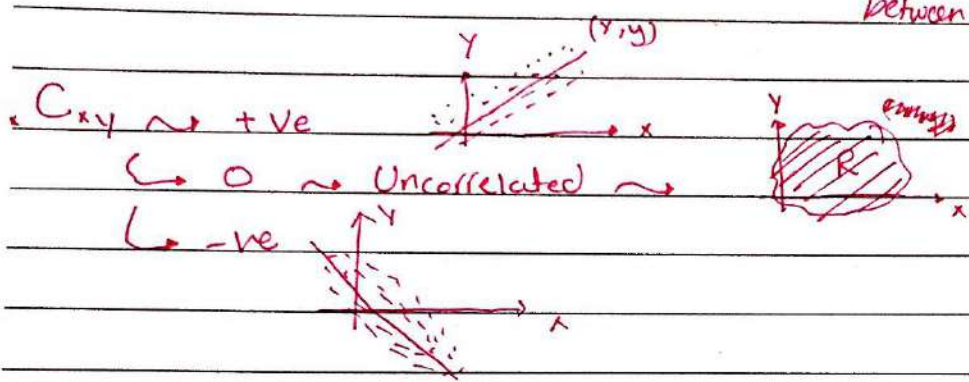 between
Y (x,y)
• Cxy ⇝ +ve x
Y
↳ 0 ⇝ Uncorrelated ⇝ R
x
↳ -ve Y
x